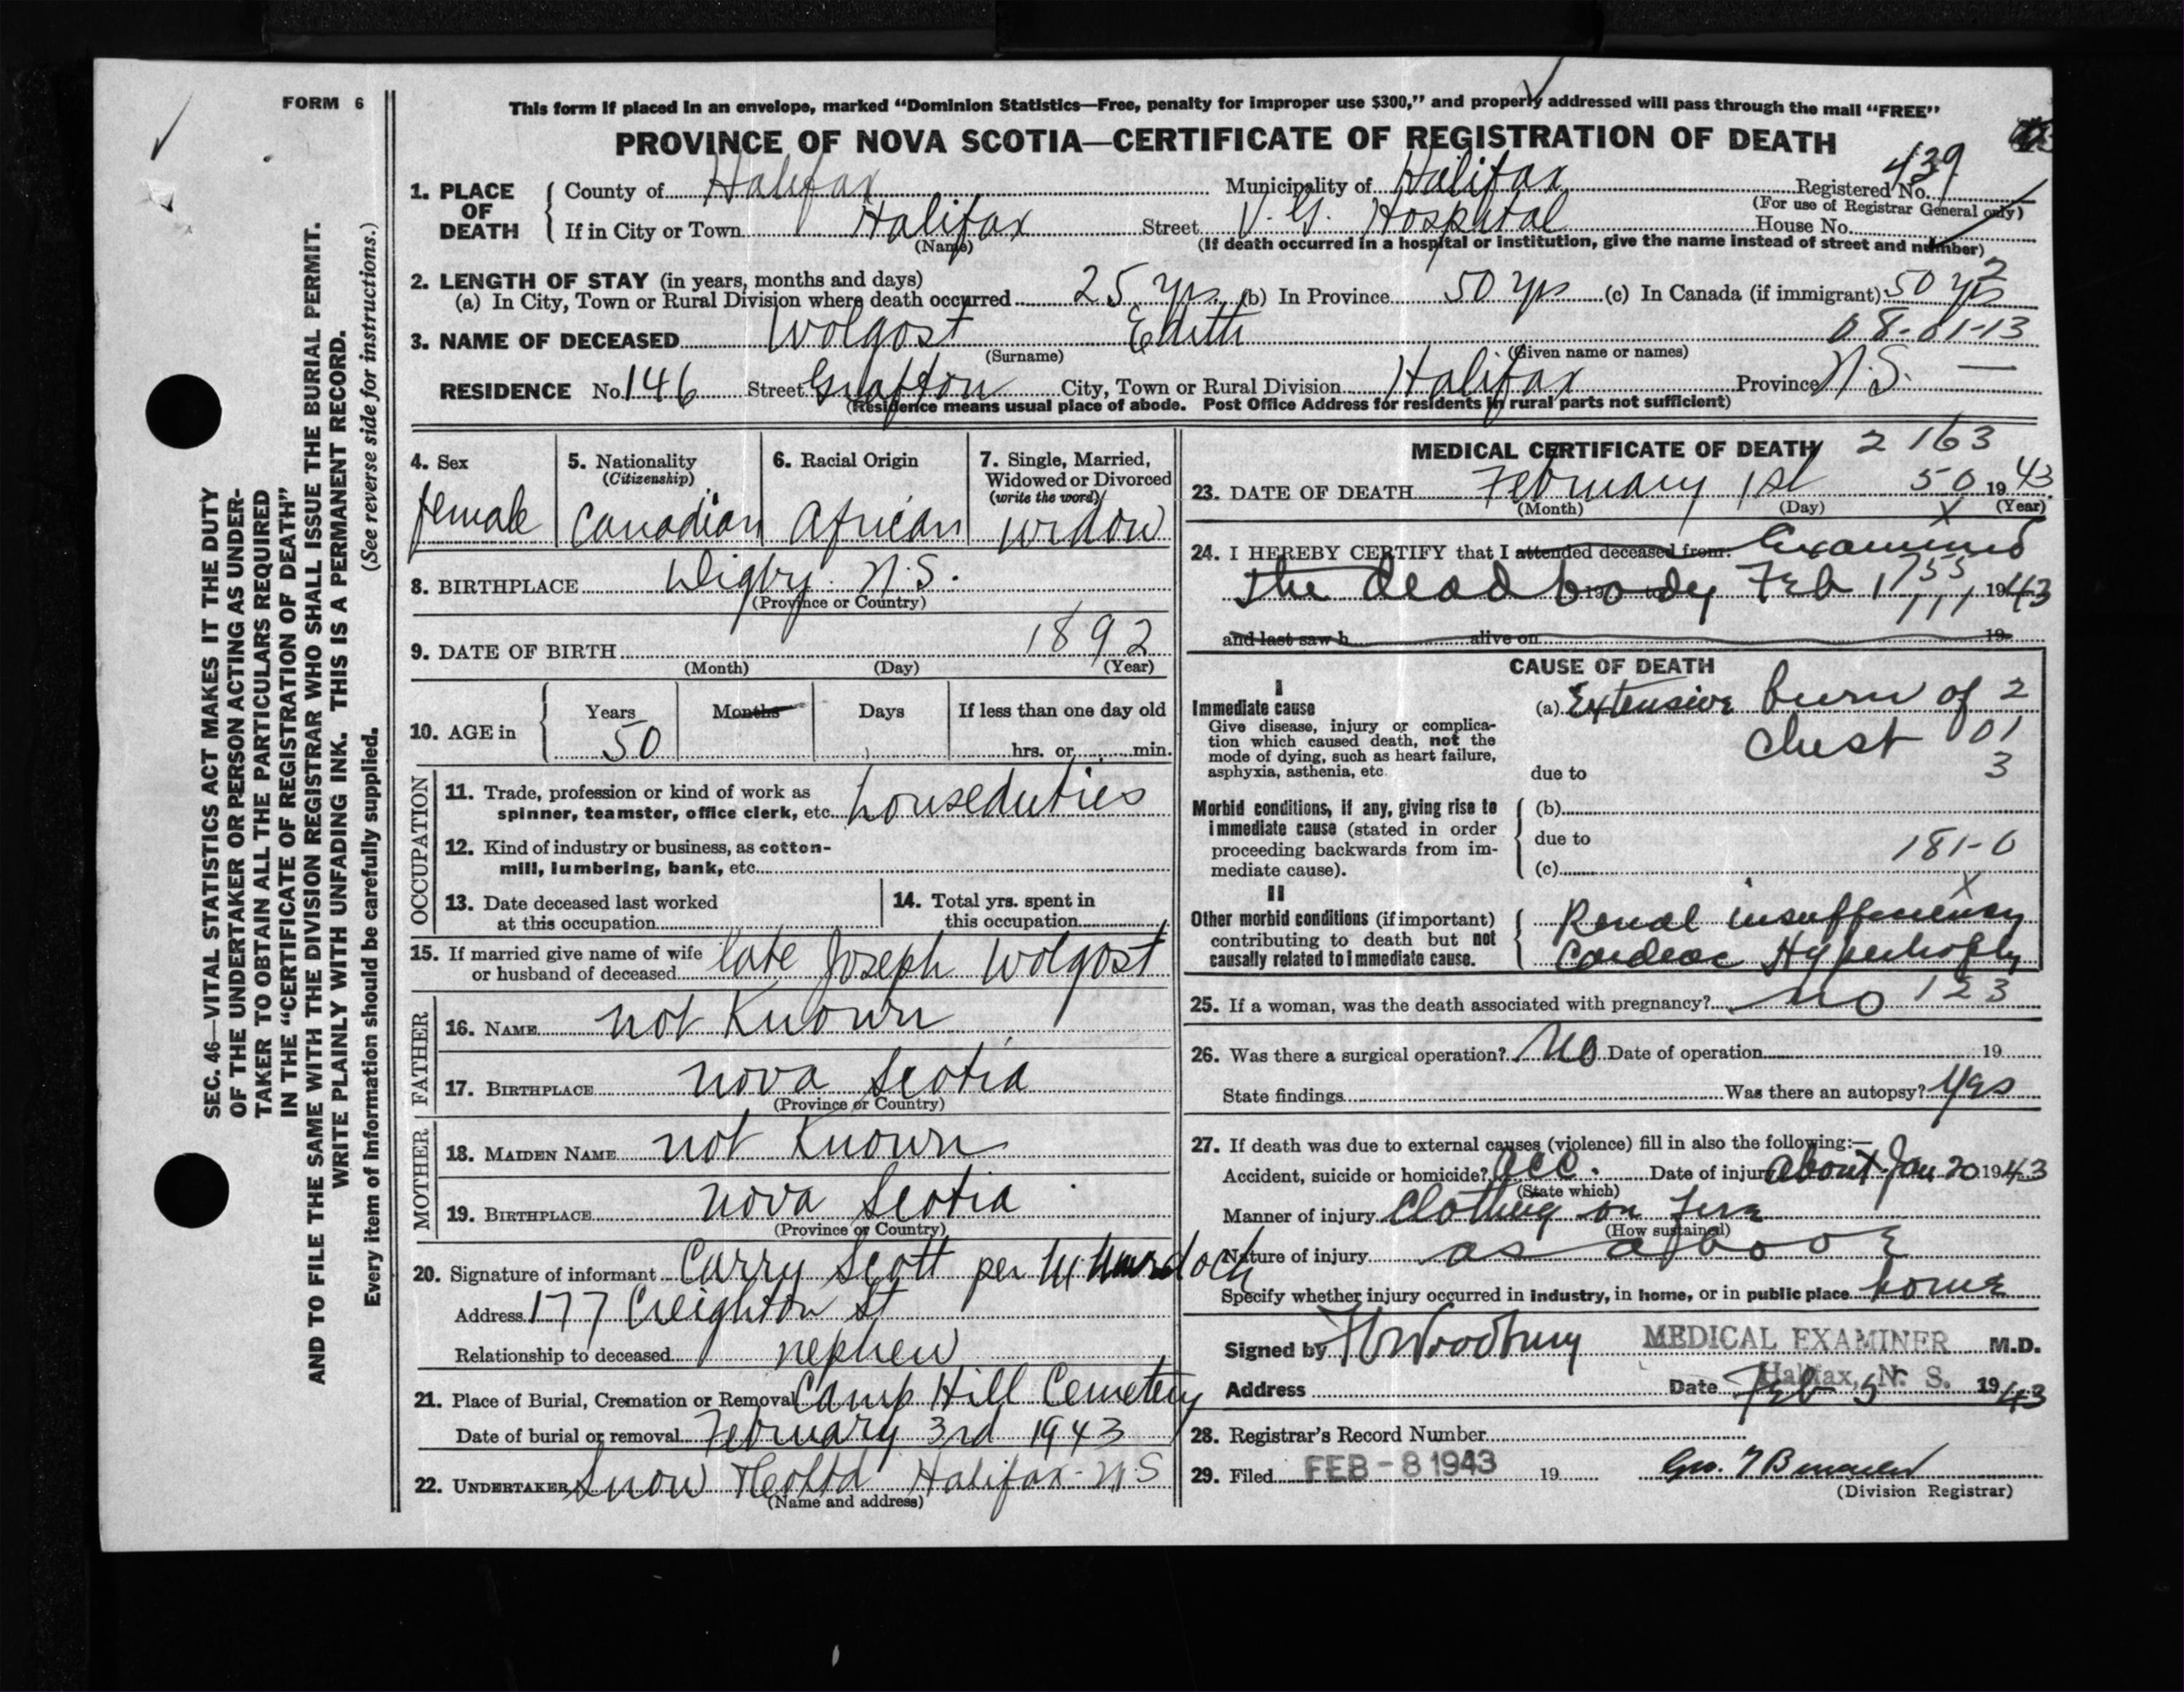 FORM 6
This form if placed in an envelope, marked “Dominion Statistics—Free, penalty for improper use $300,” and properly addressed will pass through the mail “FREE”
PROVINCE OF NOVA SCOTIA—CERTIFICATE OF REGISTRATION OF DEATH
439
1. PLACE OF DEATH
County of Halifax Municipality of Halifax Registered No.
(For use of Registrar General only)
If in City or Town Halifax Street V. G. Hospital House No.
(Name) (If death occurred in a hospital or institution, give the name instead of street and number)
2
2. LENGTH OF STAY (in years, months and days)
(a) In City, Town or Rural Division where death occurred 25 yrs. (b) In Province 50 yrs (c) In Canada (if immigrant) 50 yrs
08-01-13
3. NAME OF DECEASED Wolgost Edith
(Surname) (Given name or names)
RESIDENCE No. 146 Street Grafton City, Town or Rural Division Halifax Province N.S. —
(Residence means usual place of abode. Post Office Address for residents in rural parts not sufficient)
4. Sex
female
5. Nationality
(Citizenship)
Canadian
6. Racial Origin
African
7. Single, Married,
Widowed or Divorced
(write the word)
widow
8. BIRTHPLACE Digby. N.S.
(Province or Country)
9. DATE OF BIRTH 1892
(Month) (Day) (Year)
10. AGE in
Years Months Days If less than one day old
50 hrs. or min.
OCCUPATION
11. Trade, profession or kind of work as
spinner, teamster, office clerk, etc. houseduties
12. Kind of industry or business, as cotton-
mill, lumbering, bank, etc.
13. Date deceased last worked
at this occupation
14. Total yrs. spent in
this occupation
15. If married give name of wife
or husband of deceased late Joseph Wolgost
FATHER
16. NAME not Known
17. BIRTHPLACE Nova Scotia
(Province or Country)
MOTHER
18. MAIDEN NAME not Known
19. BIRTHPLACE Nova Scotia
(Province or Country)
20. Signature of informant Carry Scott per M Murdoch
Address 177 Creighton St
Relationship to deceased nephew
21. Place of Burial, Cremation or Removal Camp Hill Cemetery
Date of burial or removal February 3rd 1943
22. UNDERTAKER Snow & Co Ltd Halifax N.S
(Name and address)
MEDICAL CERTIFICATE OF DEATH 2 163
23. DATE OF DEATH February 1st 50 1943
(Month) (Day) (Year)
X
24. I HEREBY CERTIFY that I attended deceased from: Examined
the dead body Feb 1 1943
755
111
and last saw h alive on 19
CAUSE OF DEATH
I
Immediate cause
Give disease, injury or complica-
tion which caused death, not the
mode of dying, such as heart failure,
asphyxia, asthenia, etc.
(a) Extensive burn of 2
chest 01
due to 3
Morbid conditions, if any, giving rise to
immediate cause (stated in order
proceeding backwards from im-
mediate cause).
(b)
due to 181-0
(c)
X
II
Other morbid conditions (if important)
contributing to death but not
causally related to immediate cause.
Renal insufficiency
Cardiac Hypertrophy
25. If a woman, was the death associated with pregnancy? no 123
26. Was there a surgical operation? No Date of operation 19
State findings Was there an autopsy? Yes
27. If death was due to external causes (violence) fill in also the following:—
Accident, suicide or homicide? acc. Date of injury about Jan 20 1943
(State which)
Manner of injury Clothing on fire
(How sustained)
Nature of injury as above
Specify whether injury occurred in industry, in home, or in public place home
Signed by Woodbury MEDICAL EXAMINER M.D.
Halifax, N. S.
Address Date Feb 5 1943
28. Registrar's Record Number
29. Filed FEB - 8 1943 19 Geo.
(Division Registrar)
SEC. 46—VITAL STATISTICS ACT MAKES IT THE DUTY
OF THE UNDERTAKER OR PERSON ACTING AS UNDER-
TAKER TO OBTAIN ALL THE PARTICULARS REQUIRED
IN THE “CERTIFICATE OF REGISTRATION OF DEATH”
AND TO FILE THE SAME WITH THE DIVISION REGISTRAR WHO SHALL ISSUE THE BURIAL PERMIT.
WRITE PLAINLY WITH UNFADING INK. THIS IS A PERMANENT RECORD.
Every item of information should be carefully supplied. (See reverse side for instructions.)